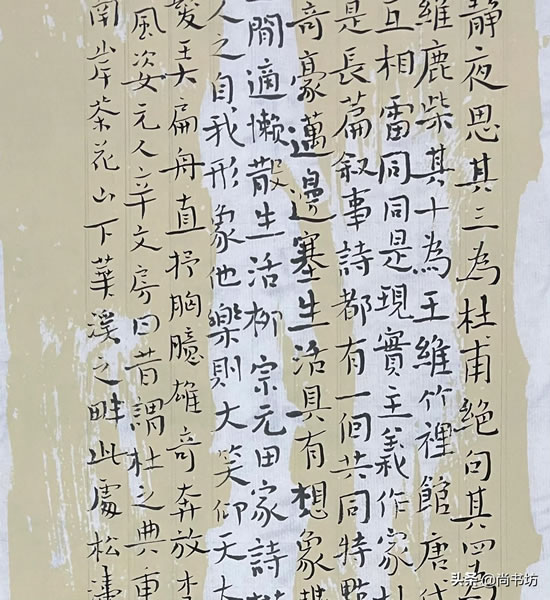 静夜思其三為杜甫絕句其四為
維鹿柴其十為王維竹裡館唐代
互相雷同同是現實主義作家
是長篇叙事詩都有一個共同特點
奇豪邁邊塞生活具有想象
閒適懒散生活柳宗元田家詩
人之自我形象他樂則大笑仰天大
愛夫扁舟直抒胸臆雄奇奔放李
風姿元人辛文房曰昔謂杜之典重
南岸茶花山下華溪之畔此處松濤
头条@尚书坊